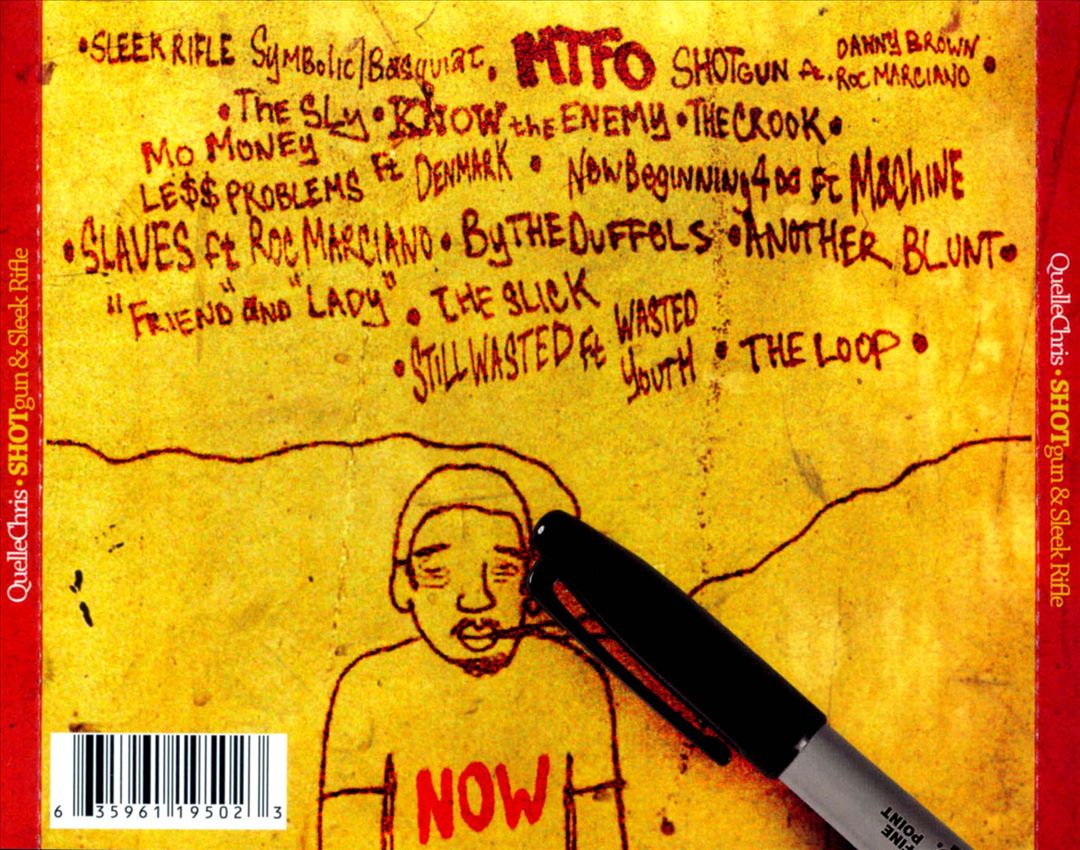 •SLEEK RIFLE Symbolic/Basquiat. MTFO SHOTGUN ft. DANNY BROWN •
ROC MARCIANO
•THE SLY •KNOW the ENEMY •THE CROOK•
MO MONEY
LE$$ PROBLEMS ft DENMARK • NewBeginning4 ft MACHINE
•SLAVES ft ROC MARCIANO• BY THE DUFFELS •ANOTHER BLUNT•
"FRIEND" and "LADY" • THE SLICK
•STILL WASTED ft WASTED
YOUTH • THE LOOP •
NOW
FINE
POINT
6 35961 19502 3
QuelleChris • SHOTgun & Sleek Rifle
QuelleChris • SHOTgun & Sleek Rifle